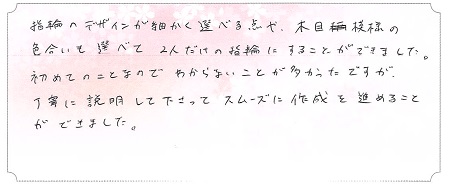 指輪のデザインが細かく選べる点や、木目編模様の
色合いも選べて2人だけの指輪にすることができました。
初めてのことなのでわからないことが多かったですが、
丁寧に説明して下さってスムーズに作成を進めること
ができました。